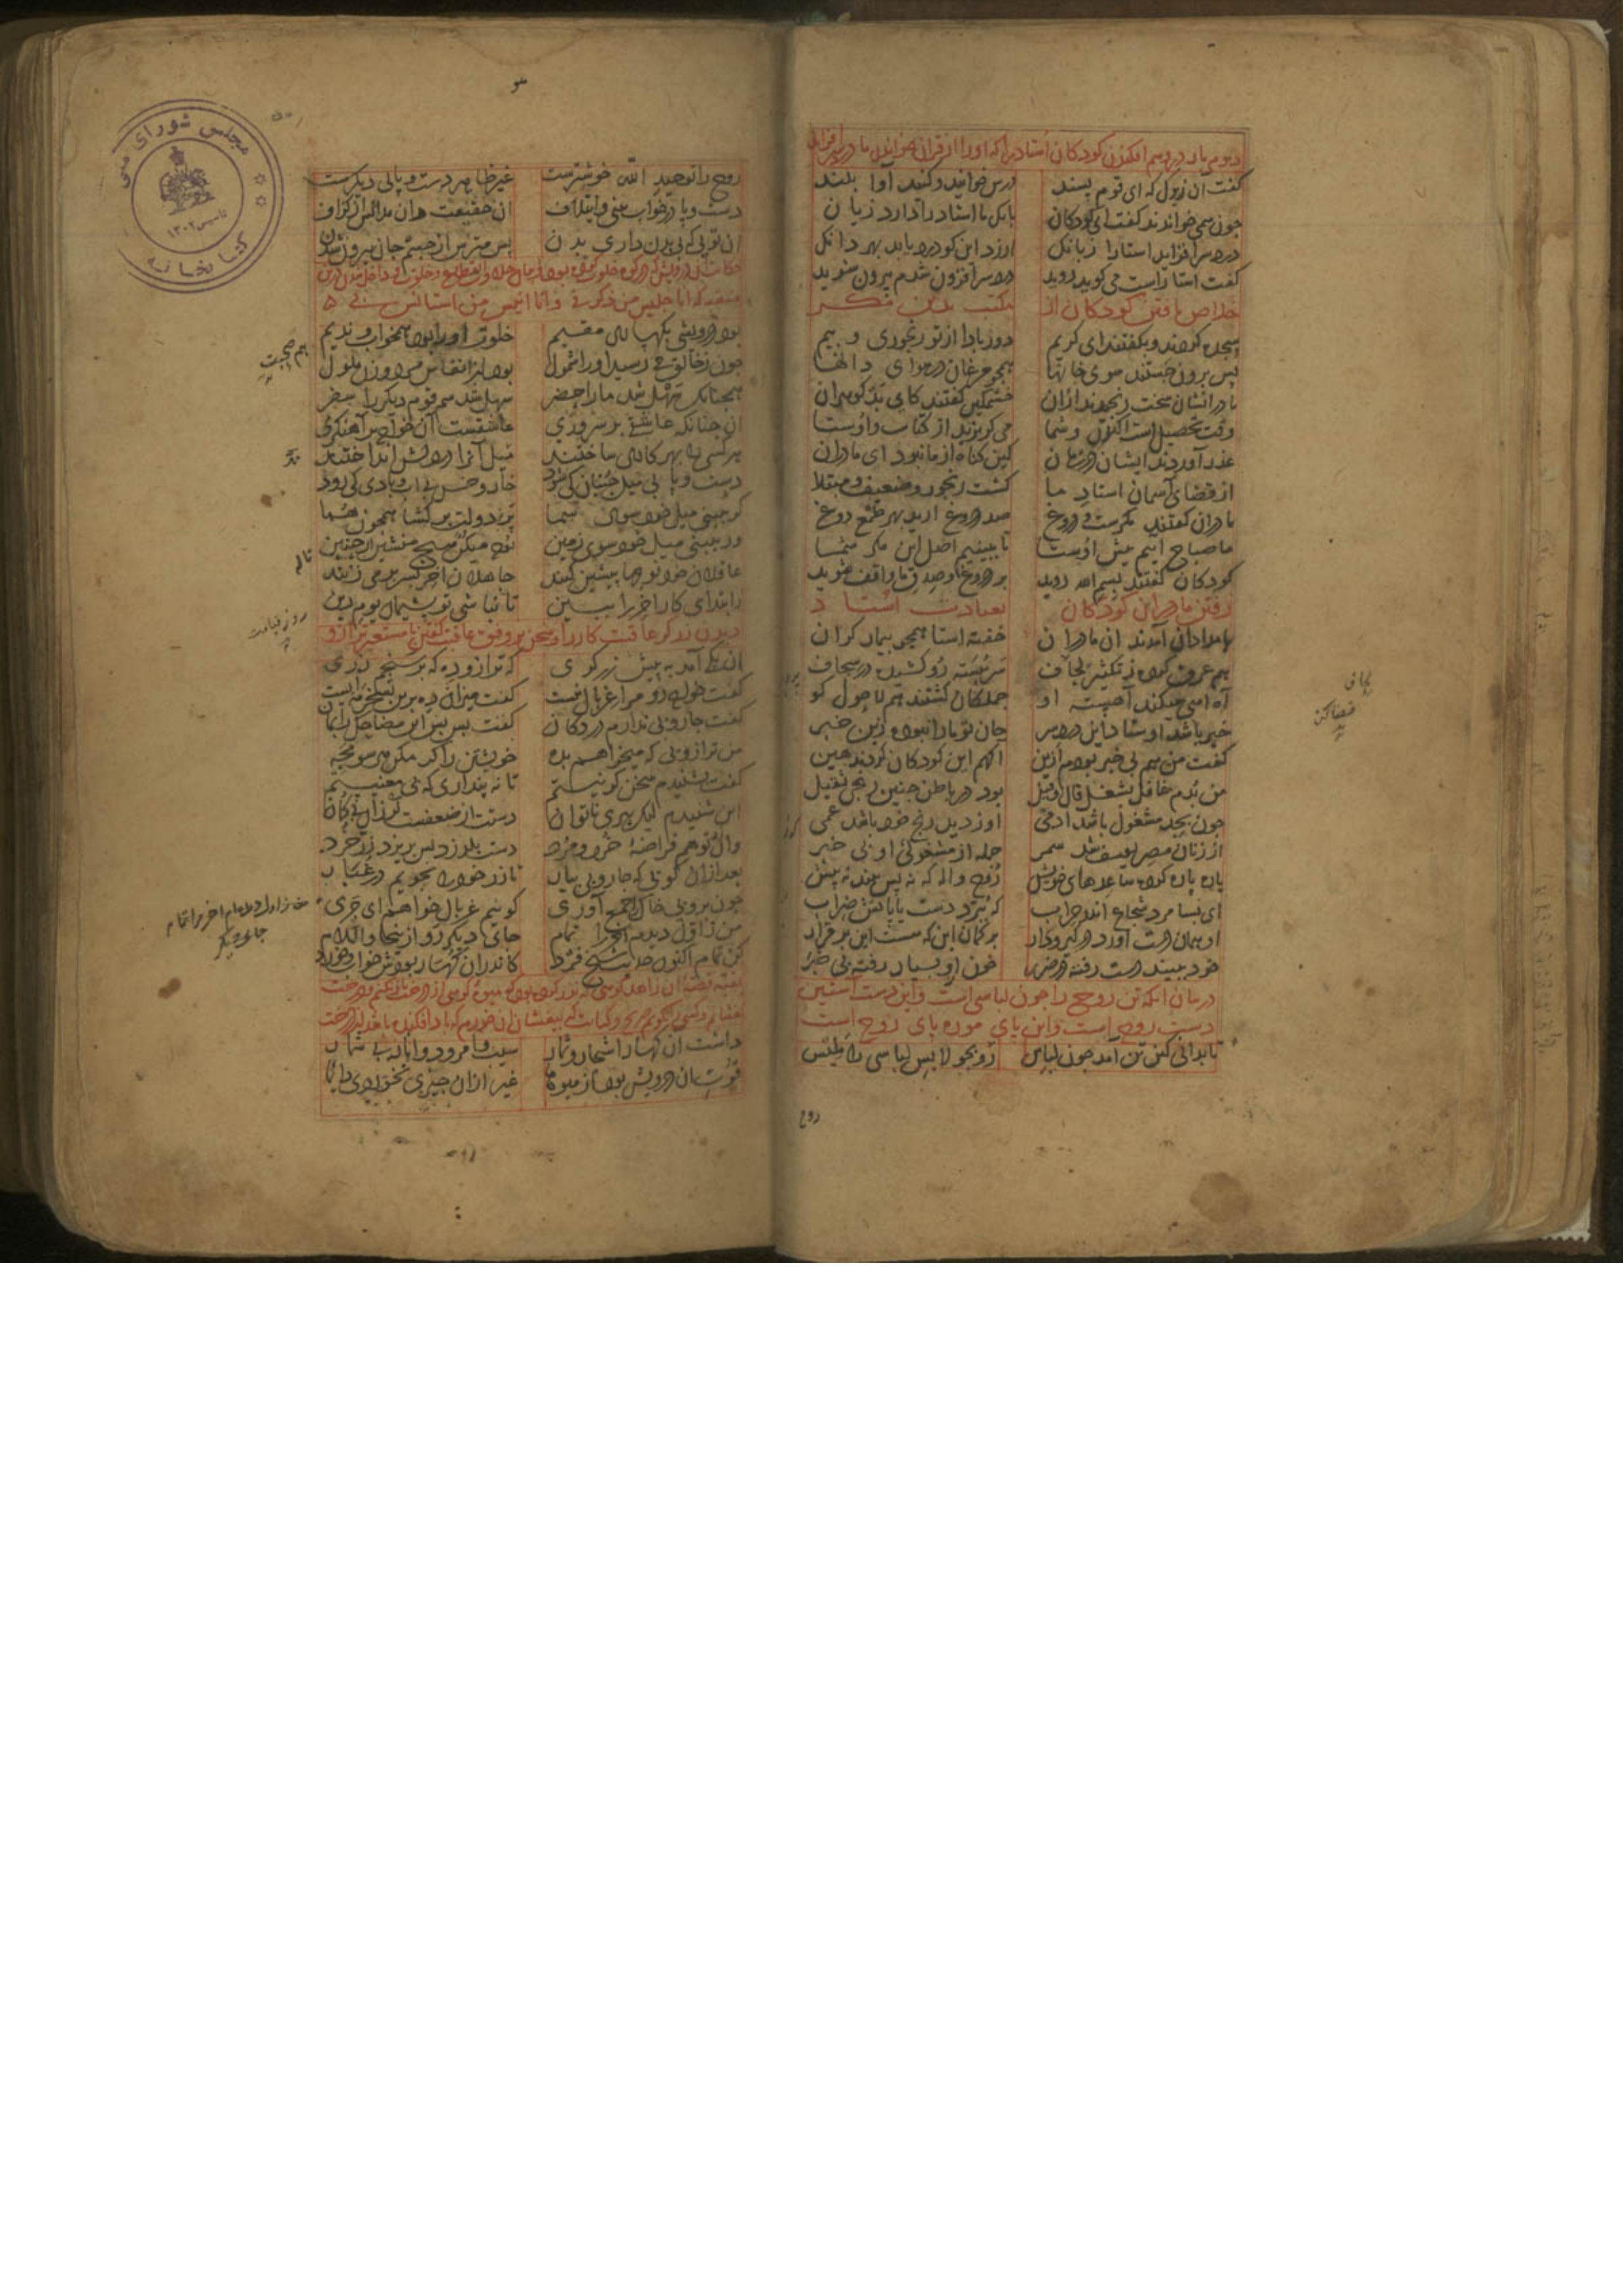 دوم بار در وهم افکندن کودکان استاد را که او را از قرآن خواندن ما درد سر افزاید
گفت آن زیرک که ای قوم پسند درس خوانید و کنید آوا بلند
چون همی خواندند گفت ای کودکان بانک ما استاد را دارد زیان
درد سر افزاید استا را ز بانک ارزد این کو درد یابد بهر دانک
گفت استا راست می کوید روید درد سر افزون شدم بیرون شوید
خلاص یافتن کودکان از مکتب بدین مکر
سجده کردند و بکفتند ای کریم دور بادا از تو رنجوری و بیم
پس برون جستند سوی خانها همچو مرغان در هوای دانها
مادرانشان خشمکین کفتند
وقت تحصیلست اکنون و شما می کریزید از کتاب و اوستا
عذر آوردند ایشان کین کناه از ما نبود ای مادران
از قضای آسمان استاد ما کشت رنجور و ضعیف و مبتلا
مادران کفتند مکرست و دروغ صد دروغ آرید بهر طمع دوغ
ما صباح آییم پیش اوستا تا ببینیم اصل این مکر شما
کودکان کفتند بسم الله روید بر دروغ و صدق ما واقف شوید
رفتن مادران کودکان بعیادت استاد
بامدادان آمدند آن مادران خفته استا همچو بیمار کران
هم عرق کرده ز تکثیر لحاف سر ببسته رو کشیده در سجاف
آه آهی میکند آهسته او جملکان کشتند هم لاحول کو
خیر باشد اوستاد این درد سر جان تو بادا نبوده زین خبر
کفت من هم بی خبر بودم ازین آکهم این کودکان کردند هین
من بدم غافل بشغل قال و قیل بود در باطن چنین رنجی ثقیل
چون بجد مشغول باشد آدمی او ز دید رنج خود باشد عمی
از زنان مصر یوسف شد سمر جمله از مشغولی او بی خبر
پاره پاره کرده ساعدهای خویش روح واله که نه پس بیند نه پیش
ای بسا مرد شجاع اندر حراب که ببرد دست یا پایش ضراب
او همان دست آورد در کیر و دار بر کمان این که هست این بر قرار
خود ببیند دست رفته در ضرر خون ازو بسیار رفته بی خبر
در بیان آنکه تن روح را چون لباسی است و این دست آستین
دست روح است و این پای موزه پای روح است
تا بدانی کین تن آمد چون لباس رو بجو لابس لباسی را ملیس
روح
بدید
روح را توحید الله خوشترست غیر ظاهر دست و پای دیکرست
دست و پا در خواب بینی و ایتلاف آن حقیقت دان مدانش از کزاف
آن تویی که بی بدن داری بدن پس مترس از جسم جان بیرون شدن
حکایت آن درویش که در کوه خلوت کرده بود و بیان حلاوت انقطاع و خلوت و داخل شدن درین
منقبه که انا جلیس من ذکرنی و انا انیس من استانس بی
بود درویشی بکهساری مقیم خلوت او را بود همخواب و ندیم
چون ز خالق می رسید او را شمول بود از انفاس مرد و زن ملول
همچنانک سهل شد ما را حضر سهل شد هم قوم دیکر را سفر
آن چنانک عاشقی بر سروری عاشقست آن خواجه بر آهنکری
هر کسی را بهر کاری ساختند میل آنرا در دلش انداختند
دست و پا بی میل جنبان کی شود خار و خس بی آب و بادی کی رود
کر ببینی میل خود سوی سما پر دولت بر کشا همچون هما
ور ببینی میل خود سوی زمین نوحه میکن هیچ منشین از حنین
عاقلان خود نوحها پیشین کنند جاهلان آخر بسر بر می زنند
ز ابتدای کار آخر را ببین تا نباشی تو پشیمان یوم دین
دیدن زرکر عاقبت کار را و سخن بر وفق عاقبت کفتن با مستعیر ترازو
آن یکی آمد به پیش زرکری که ترازو ده که بر سنجم زری
کفت خواجه رو مرا غربال نیست کفت میزان ده برین تسخر مایست
کفت جاروبی ندارم در دکان کفت بس بس این مضاحک را بمان
من ترازویی که میخواهم بده خویشتن را کر مکن هر سو مجه
کفت بشنیدم سخن کر نیستم تا نه پنداری که بی معنیستم
این شنیدم لیک پیری ناتوان دست از ضعفت لرزان
وان زر تو هم قراضه خرد و مرد دست بلرزد پس بریزد زر خرد
بعد از آن کویی که جاروبی بیار تا زر خود را بجویم در غبار
چون بروبی خاک را جمع آوری کوییم غربال خواهم ای جری
من ز اول دیدم آخر را تمام جای دیکر رو از اینجا والسلام
کن تمام اکنون حدیث شیخ فرد کاندران کهسار بودش خواب و خورد
بقیه قصه آن زاهد کوهی که نذر کرده بود که میوه کوهی از درخت باز نکنم و درخت
نفشانم و کسی را نکویم صریح و کنایت که بیفشان آن خورم که باد افکنده باشد از درخت
داشت آن کهسار اشجار و ثمار سیب و امرود و انار بی شمار
قوت آن درویش بود آن میوها غیر از آن چیزی نخوردی دایما
هم صحبت
ناله
روز قیامت
جای دیکر
مجلس شورای ملی
کتابخانه
تاسیس ۱۳۰۲